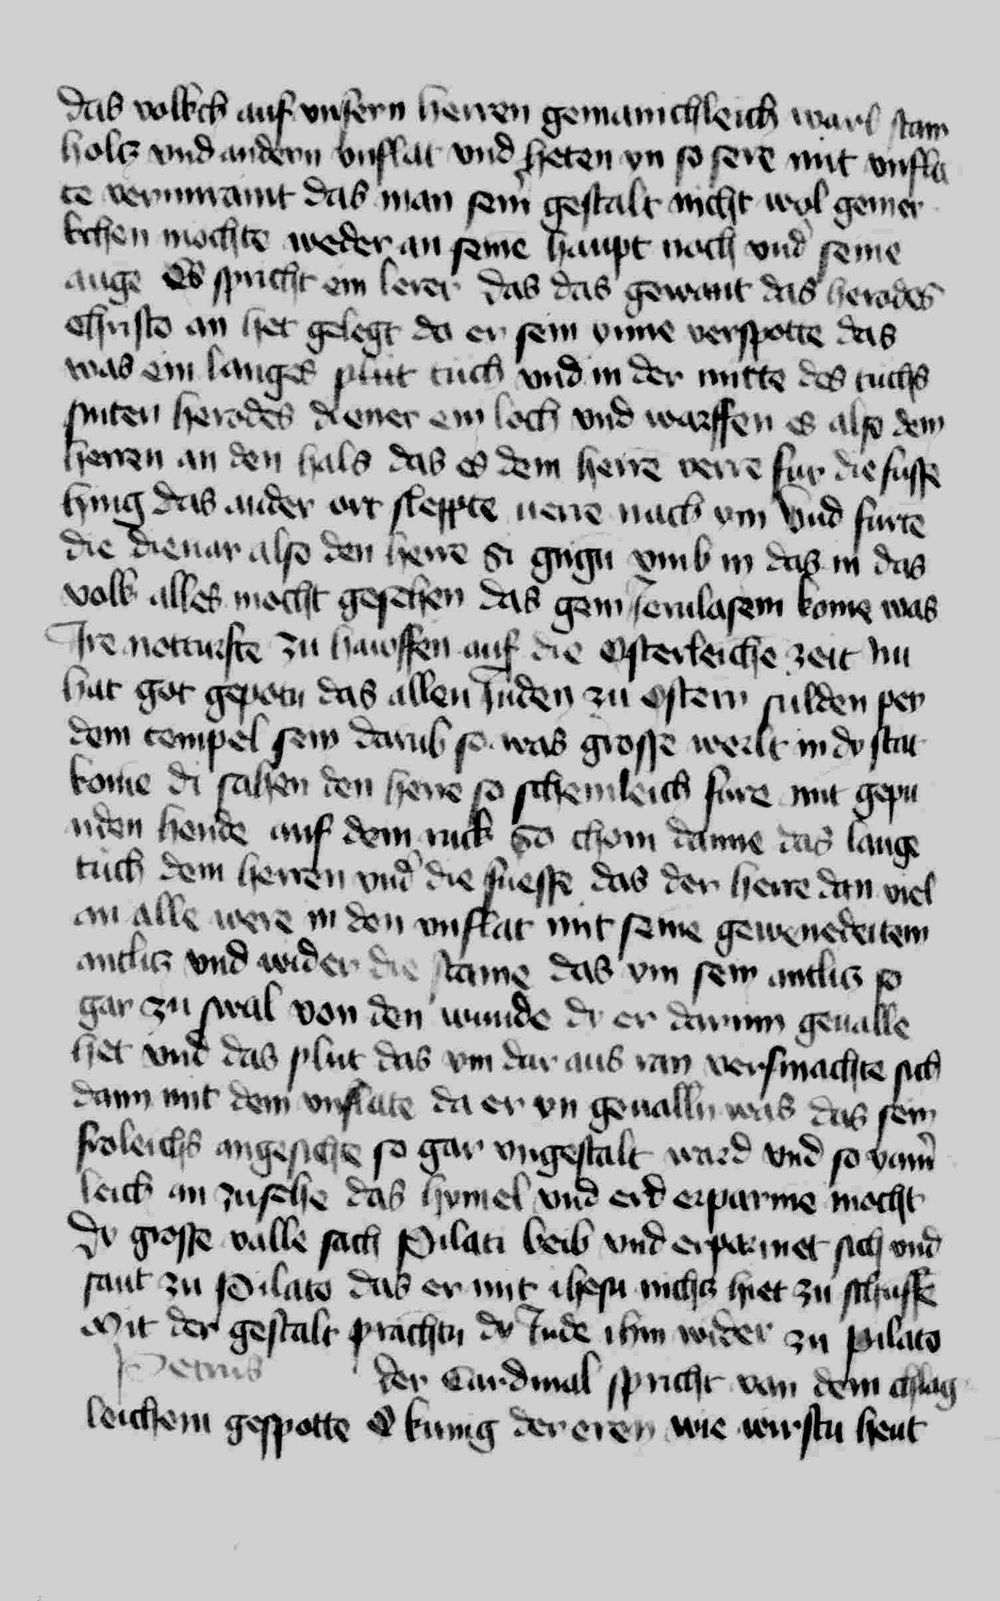 das volkch auf vnsern herren gemainchleich warf stain
holcz vnd andern vnflat vnd heten yn so sere mit vnfla
te vermiramt das man sein gestalt nicht wol gemer
kchen mochte weder an seine haupt noch vnd seine
auge Es spricht ein lerer das das gewant das herodes
Christo an het gelegt do er sein ynne verspotte das
was ein langes pint tuch vnd in der mitte des tuchs
sniten herodes diener ein loch vnd warffen es also dem
herren an den hals das es dem herre verre fur die fusse
hing das ander ort sleppte verre nach ym Vnd furte
die dienar also den herre Si gngn vmb in das in das
volk alles mocht gesehen das gem Jerulasem kome was
Ire notturfte zu hawffen auf die Osterleiche zeit Nu
hat got gepotn das allen Juden zu Ostern sulden pey
dem tempel sein darub so was grosse werlt in dy stat
kome di sahen den herre so schemleich fure mit gepu
nden hende auf dem ruck So chom danne das lange
tuch dem herren vnd die fuesse das der herre dan viel
an alle were in den vnflat mit seine gewenedeitem
antlicz vnd wider die staine das ym sein antlicz so
gar zu swal von den wunde dy er darinn geualle
het vnd das plut das ym dar aus ran versmachte sich
dann mit dem vnflate da er yn geualln was das sein
froleichs angesichte so gar vngestalt ward vnd so yamer
leich an zusehe das hymel vnd erd erparme mocht
Dy grosse valle sach Pilati beib vnd erparmet sich vnd
sant zu Pilato das er mit ihesu nichcz hiet zu schaffe
Mit der gestalt prachtn dy Jude ihm wider zu pilato
Petrus der Cardinal spricht von dem chlag
leichem gespotte O kunig der eren wie wirstu heut